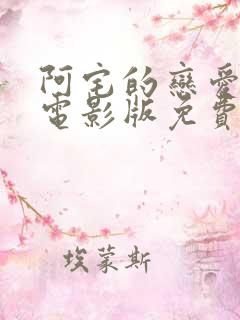 阿宅的戀愛
電影版免費
埃蒙斯